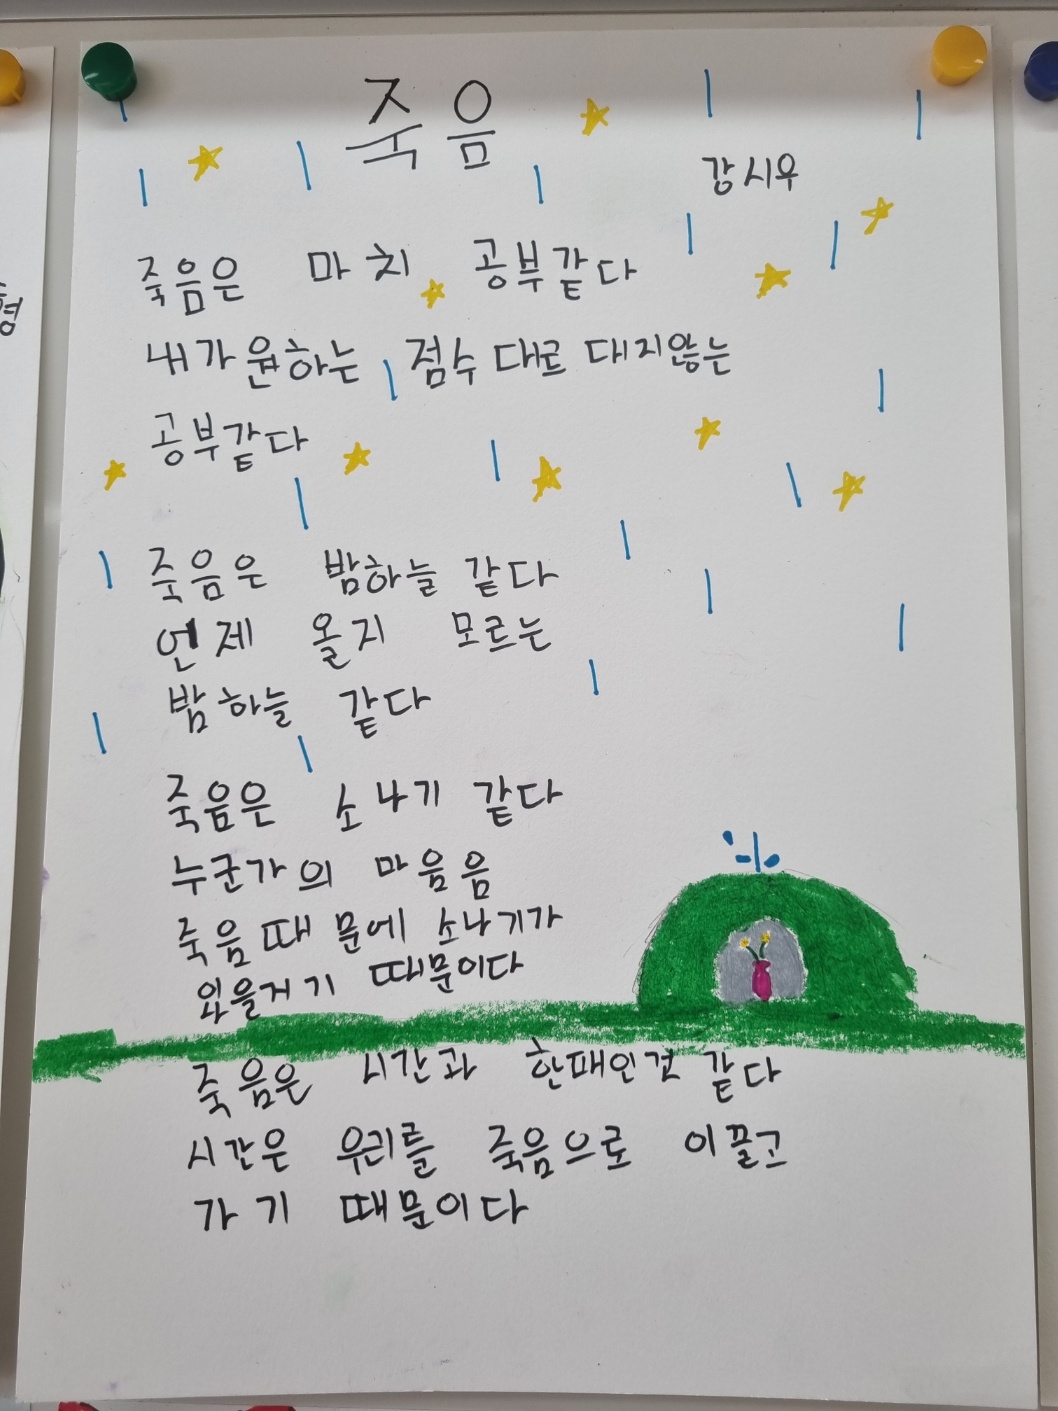 죽음
강시우
죽음은 마치 공부같다
내가 원하는 점수 대로 대지않는
공부같다
죽음은 밤하늘 같다
언제 올지 모르는
밤하늘 같다
죽음은 소나기 같다
누군가의 마음음
죽음 때문에 소나기가
왔을거기 때문이다
죽음은 시간과 한패인것 같다
시간은 우리를 죽음으로 이끌고
가기 때문이다
형